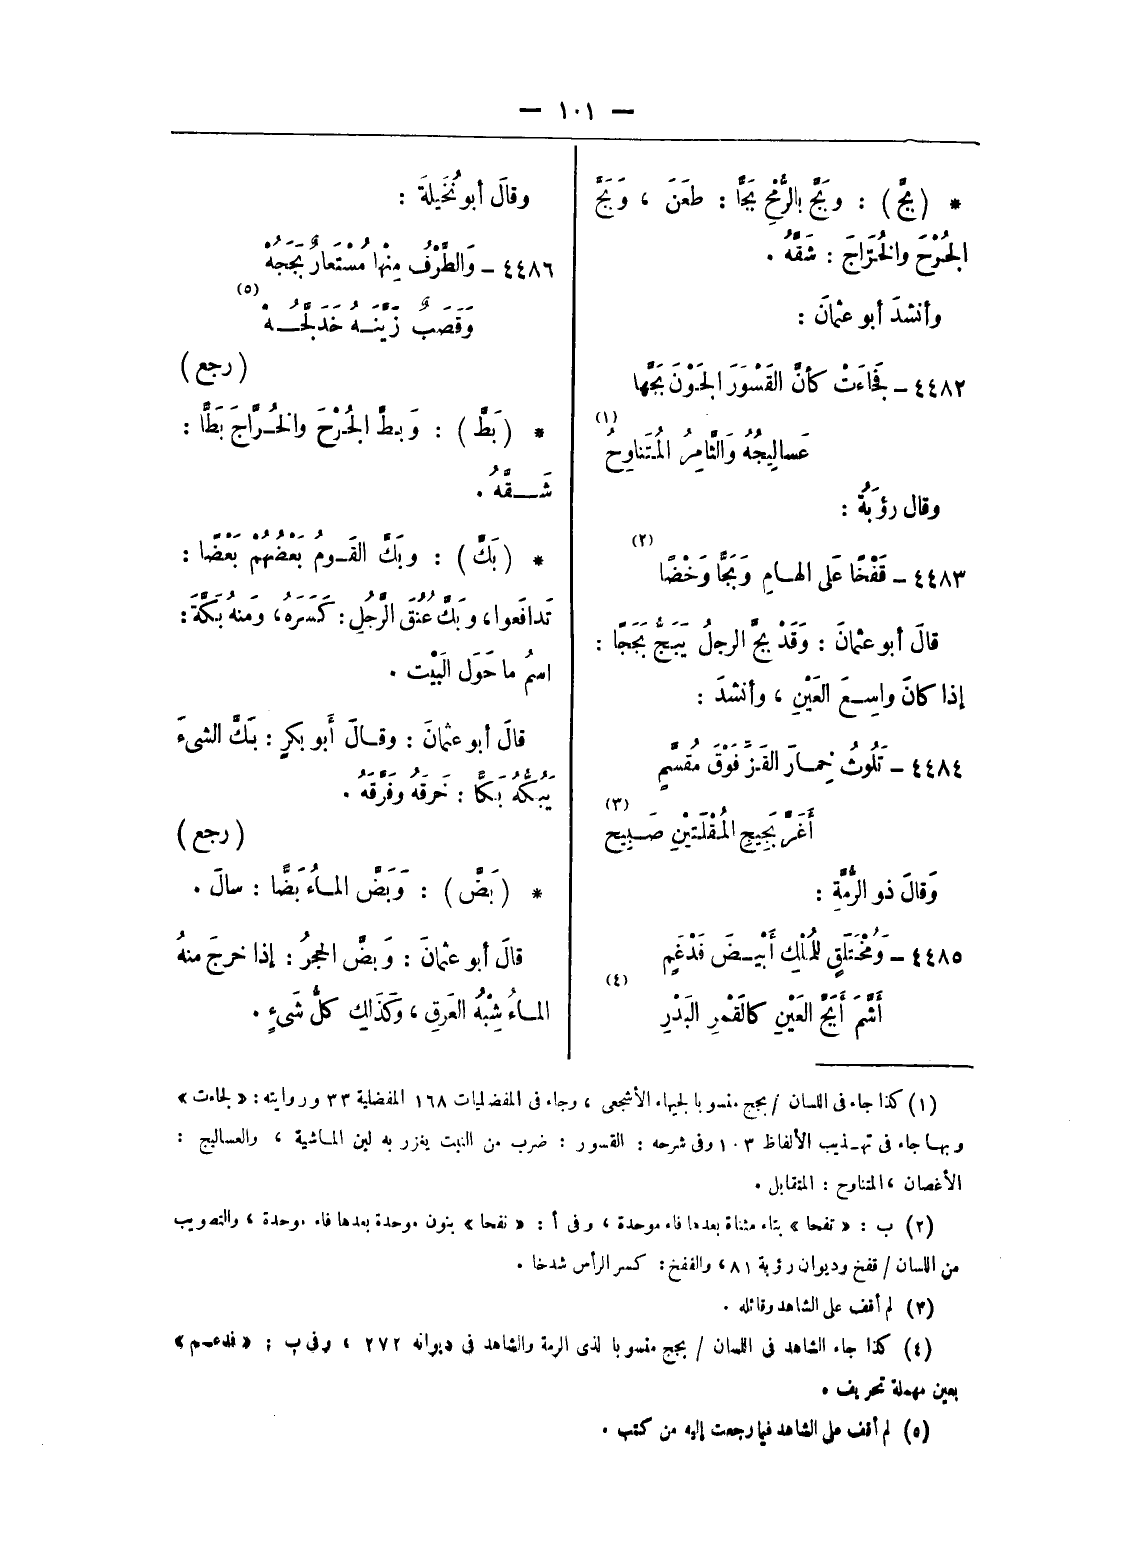 — ١٠١ —
* ( بَجَّ ) : وبَجَّ بالرُّمْحِ بَجًّا : طعَنَ ، وَبَجَّ
الجُرْحَ والخُرَاجَ : شَقَّهُ .
وأنشدَ أبو عثمانَ :
٤٤٨٢ – فَجاءَتْ كأنَّ القَسْوَرَ الجَوْنَ بَجَّها
عَساليِجُهُ وَالثَّامِرُ المُتَناوِحُ (١)
وقال رؤبَةُ :
٤٤٨٣ – قَفْخًا عَلى الهـامِ وَبَجًّا وَخْضًا (٢)
قالَ أبو عثمانَ : وَقَدْ بجَّ الرجلُ يَبَجُّ بَجَجًا :
إذا كانَ واسِـعَ العَيْنِ ، وأنشدَ :
٤٤٨٤ – تَلُوثُ خِمـارَ القَـزِّ فَوْقَ مُقَسَّمٍ
أَغَرَّ بَجِيجِ المُقْلَتَيْنِ صَـبِيحِ (٣)
وَقالَ ذو الرُّمَّةِ :
٤٤٨٥ – وَمُخْتَلَقٍ لِلْمُلْكِ أَبْيَـضَ فَدْغَمٍ
أَشَّمَ أَبَجَّ العَيْنِ كالقَمْرِ البَدْرِ (٤)
وقالَ أبو نُخَيلَةَ :
٤٤٨٦ – وَالطَّرْفُ مِنْها مُسْتَعارٌ بَجَجُهْ
وَقَصَبٌ زَيَّنَـهُ خَدَلَّجُـهْ (٥)
( رجع )
* ( بَطَّ ) : وَبطَّ الجُرْحَ والخُـرَّاجَ بَطًّا :
شَـقَّهُ .
* ( بَكَّ ) : وبَكَّ القَـومُ بَعْضُهُمْ بَعْضًا :
تَدافَعوا ، وبَكَّ عُنُقَ الرَّجُلِ : كَسَرَهُ ، وَمنهُ بَكَّةَ :
اسمُ ما حَوَل البَيْت .
قالَ أبو عثمانَ : وقـالَ أَبو بكرٍ : بَكَّ الشيءَ
يَبُكُّهُ بَكًّا : خَرقَهُ وَفَرَّقَهُ .
( رجع )
* ( بَضَّ ) : وَبَضَّ المـاءُ بَضًّا : سالَ .
قالَ أبو عثمانَ : وَبضَّ الحجرُ : إذا خرجَ منهُ
المـاءُ شِبْهُ العَرقِ ، وكَذَلكِ كلُّ شَىءٍ .
(١) كذا جاء فى اللسان / بجج منسوبا لجبهاء الأشجعى ، وجاء فى المفضليات ١٦٨ المفضلية ٣٣ وروايته : « لجاءت »
وبها جاء فى تهـذيب الألفاظ ١٠٣ وفى شرحه : القسور : ضرب من النبت يغزر به لبن المـاشية ، والعساليج :
الأغصان ، المتناوح : المتقابل .
(٢) ب : « تفحا » بتاء مثناة بعدها فاء موحدة ، وفى أ : « نفحا » بنون موحدة بعدها فاء موحدة ، والتصويب
من اللسان / قفخ وديوان رؤبة ٨١ ، والقفخ : كسر الرأس شدخا .
(٣) لم أقف على الشاهد وقائله .
(٤) كذا جاء الشاهد فى اللسان / بجج منسوبا لذى الرمة والشاهد فى ديوانه ٢٧٢ ، وفى ب : « فدعـم »
بعين مهملة تحريف .
(٥) لم أقف على الشاهد فيما رجعت إليه من كتب .